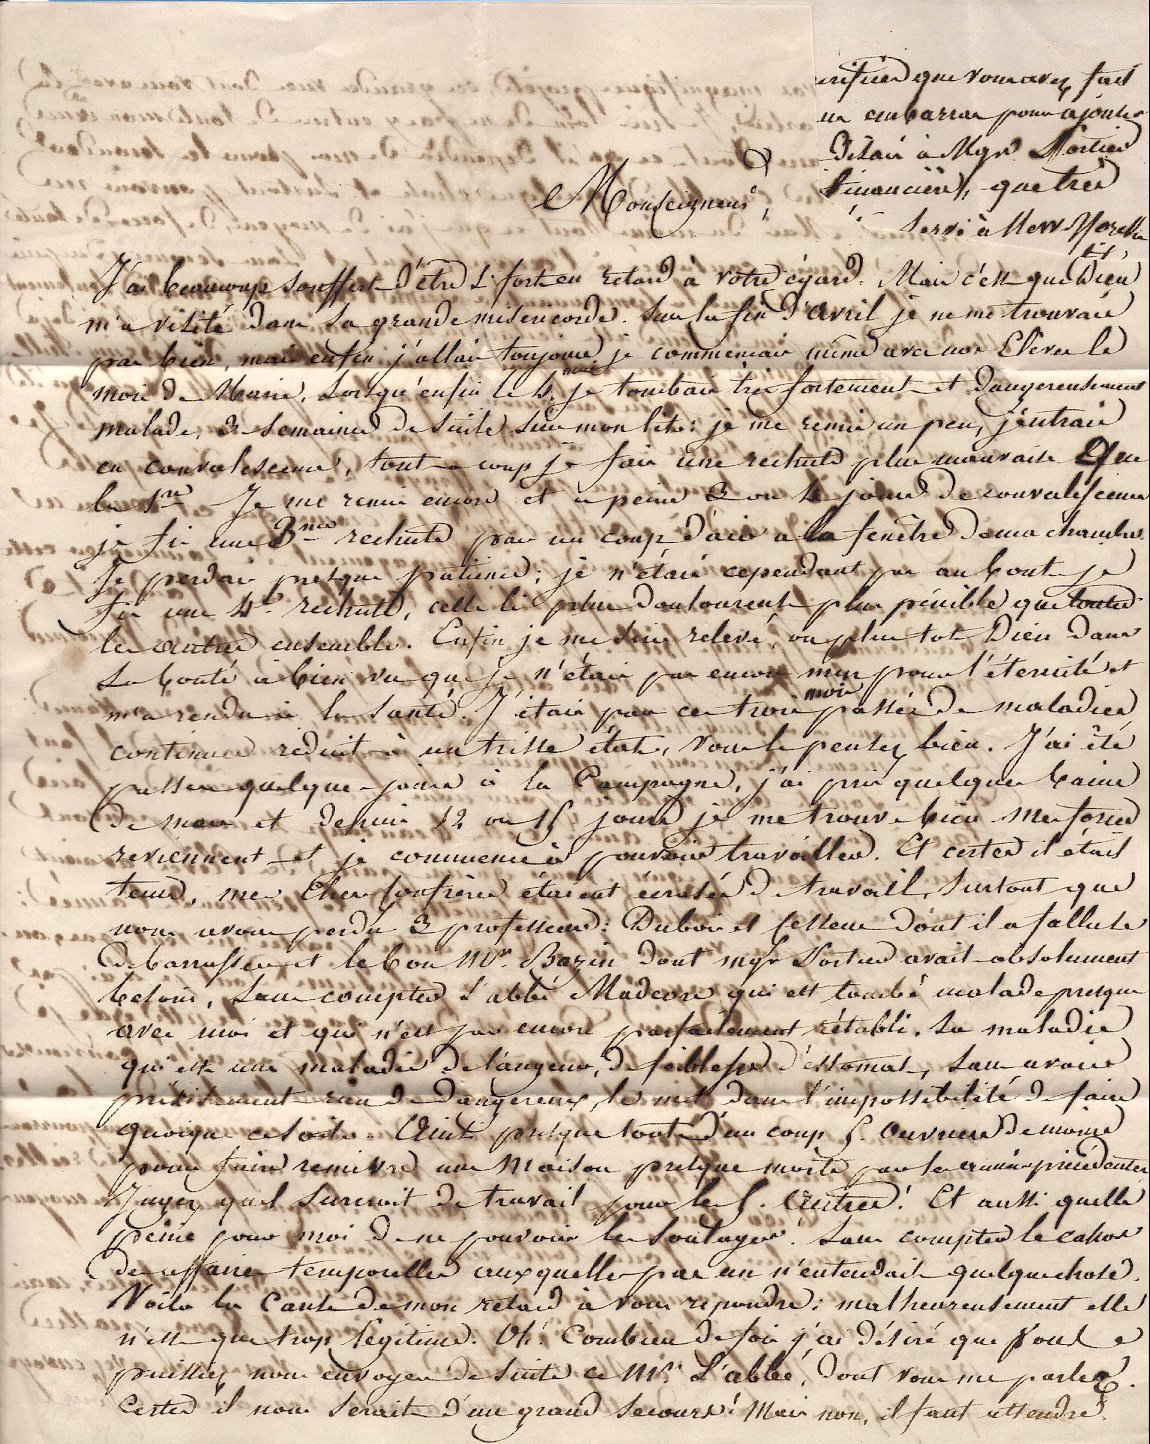 que vous avez fait
embarras pour ajouter
à Mgr Fortier
financière, que très
servi à Messrs
Monseigneur,
J'ai beaucoup souffert d'être si fort en retard à votre égard. Mais c'est que Dieu
m'a visité dans sa grande misericorde. Sur la fin d'avril je ne me trouvais
pas bien, mais enfin j'allais toujours, je commencais même avec nos Elèves le
mois de Marie, lorsqu'enfin le 4 mai je tombais très fortement et dangereusement
malade, 3 semaines de suite sur mon lit: je me remis un peu, j'entrais
en convalescence, tout à coup je fais une rechute plus mauvaise que
la 1re Je me remis encore et à peine 3 ou 4 jours de convalescence
je fis une 3me rechute par un coup d'air à la fenêtre de ma chambre.
Je perdais presque patience; je n'étais cependant pas au bout je
fis une 4e rechute, celle là plus douloureuse plus pénible que toutes
les autres ensemble. Enfin je me suis relevé, ou plus tot Dieu dans
sa bonté a bien vu que je n'étais pas encore mur pour l'éternité et
m'a rendu à la santé. J'étais par ces trois mois passés de maladies
continues réduit à un triste état, vous le pensez bien. J'ai été
passer quelques jours à la Campagne, j'ai pris quelques bains
de mer et depuis 12 ou 15 jours je me trouve bien mes forces
reviennent et je commence à pouvoir travailler. Et certes il était
tems, mes Chers Confrères étaient écrasés de travail, surtout que
nous avons perdu 3 professeurs: Dubois et dont il a fallu se
débarrasser et le bon Mr. Bazin dont mgr Fortier avait absolument
besoin, sans compter l'abbé qui est tombé malade presque
avec moi et qui n'est pas encore parfaitement rétabli. Sa maladie
qui est une maladie de langueur, de faiblesse d'estomac, sans avoir
précisément rien de dangereux, le met dans l'impossibilité de faire
quoique ce soit. Ainsi presque tout d'un coup 5 ouvriers de moins
pour faire revivre une Maison presque morte par les années précédentes
Jugez quel surcroit de travail pour les 5 autres! Et aussi quelle
peine pour moi de ne pouvoir les soulager. Sans compter le cahos
des affaires temporelles auxquelles pas un n'entendait quelque chose.
Voilà la cause de mon retard à vous répondre; malheureusement elle
n'est que trop légitime. Oh! Combien de fois j'ai désiré que vous
puissiez nous envoyer de suite ce Mr. L'abbé, dont vous me parlez.
Certes il nous serait d'un grand secours! Mais non, il faut attendre.